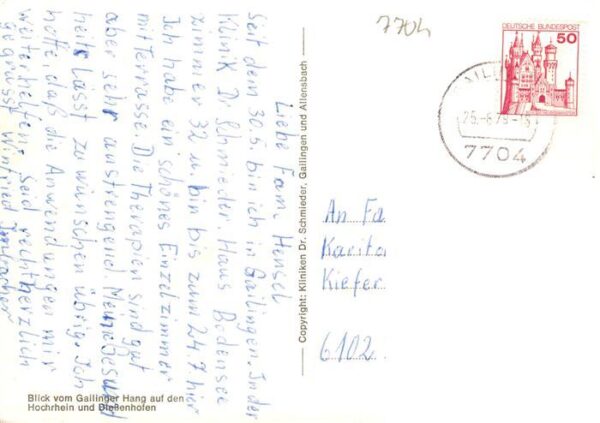 7704
DEUTSCHE BUNDESPOST
50
25.-6.79-16
7704
Liebe Fam. Hensel
Seit dem 30.5 bin ich in Gailingen. In der
Klinik Dr Schmieder. Haus Bodensee
zimmer 32 u. bin bis zum 24.7 hier
Ich habe ein schönes Einzelzimmer
mit Terrasse. Die Therapien sind gut
aber sehr anstrengend. Meine Gesund
heit lässt zu wünschen übrig. Ich
hoffe, daß die Anwendungen mir
weiterhelfen. Seid recht herzlich
gegrüsst Winfried
Copyright: Kliniken Dr. Schmieder, Gailingen und Allensbach
An Fa
Karita
Kiefer
6102
Blick vom Gailinger Hang auf den
Hochrhein und Dießenhofen